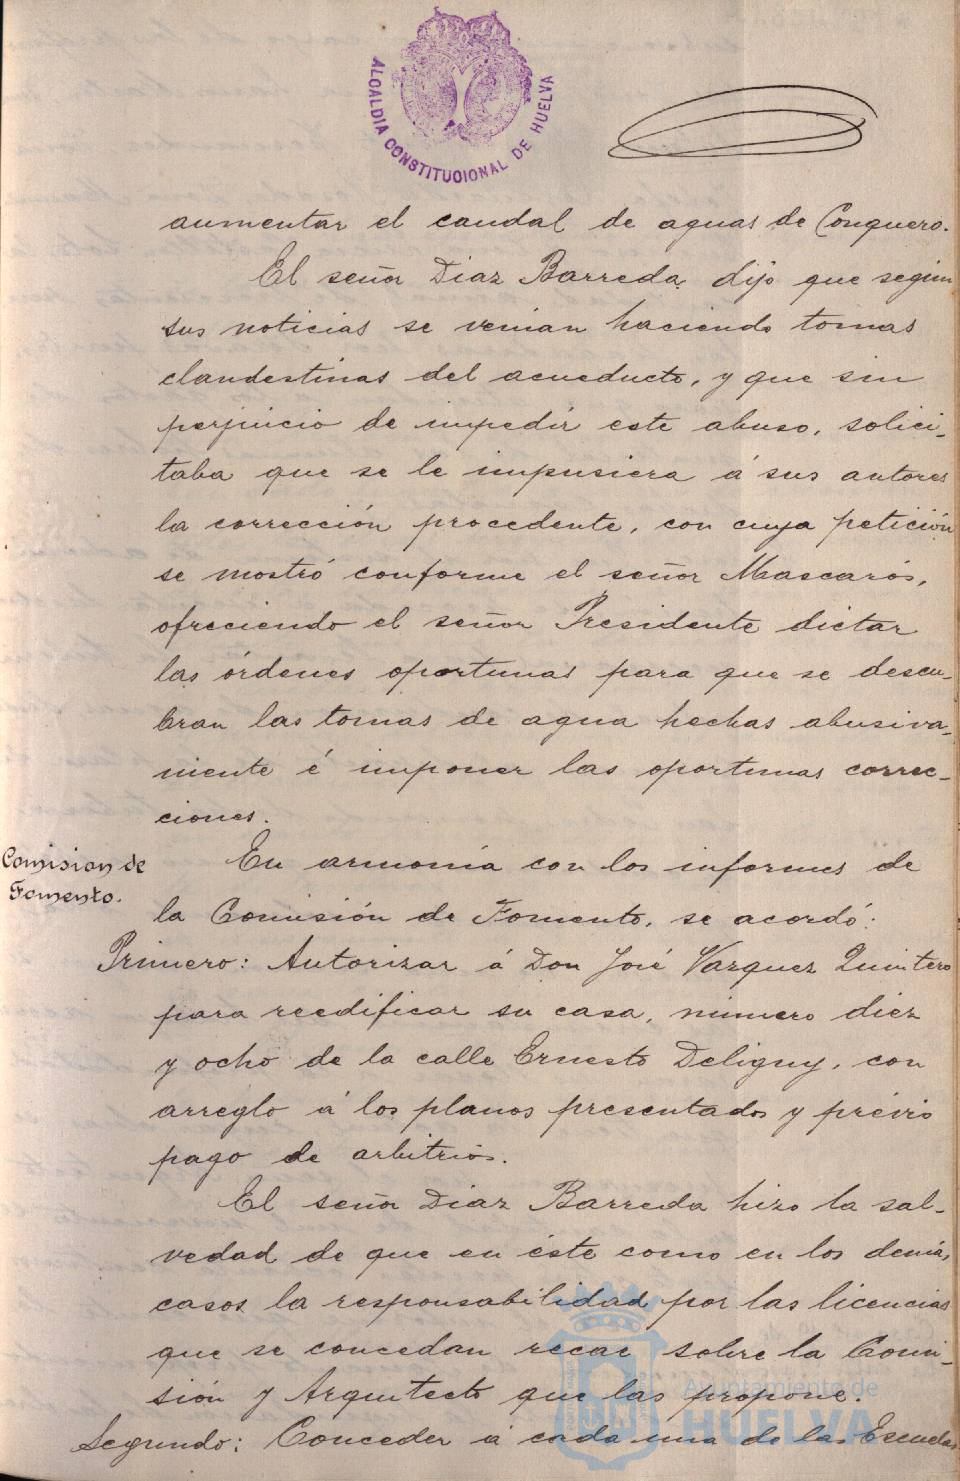 ALCALDIA CONSTITUCIONAL DE HUELVA
aumentar el caudal de aguas de Conquero.
El señor Diaz Barreda dijo que según
sus noticias se venian haciendo tomas
clandestinas del acueducto, y que sin
perjuicio de impedir este abuso, solici-
taba que se le impusiera á sus autores
la corrección procedente, con cuya petición
se mostró conforme el señor Mascarós,
ofreciendo el señor Presidente dictar
las órdenes oportunas para que se descu-
bran las tomas de agua hechas abusiva-
mente é imponer las oportunas correc-
ciones.
Comision de
Fomento.
En armonía con los informes de
la Comisión de Fomento, se acordó:
Primero: Autorizar á Don José Vazquez Quintero
para reedificar su casa, número diez
y ocho de la calle Ernesto Deligny, con
arreglo á los planos presentados y prévio
pago de arbitrios.
El señor Diaz Barreda hizo la sal-
vedad de que en éste como en los demás
casos la responsabilidad por las licencias
que se concedan recae sobre la Comi-
sión y Arquitecto que las propone.
Segundo: Conceder á cada una de las Escuelas
Ayuntamiento de
HUELVA